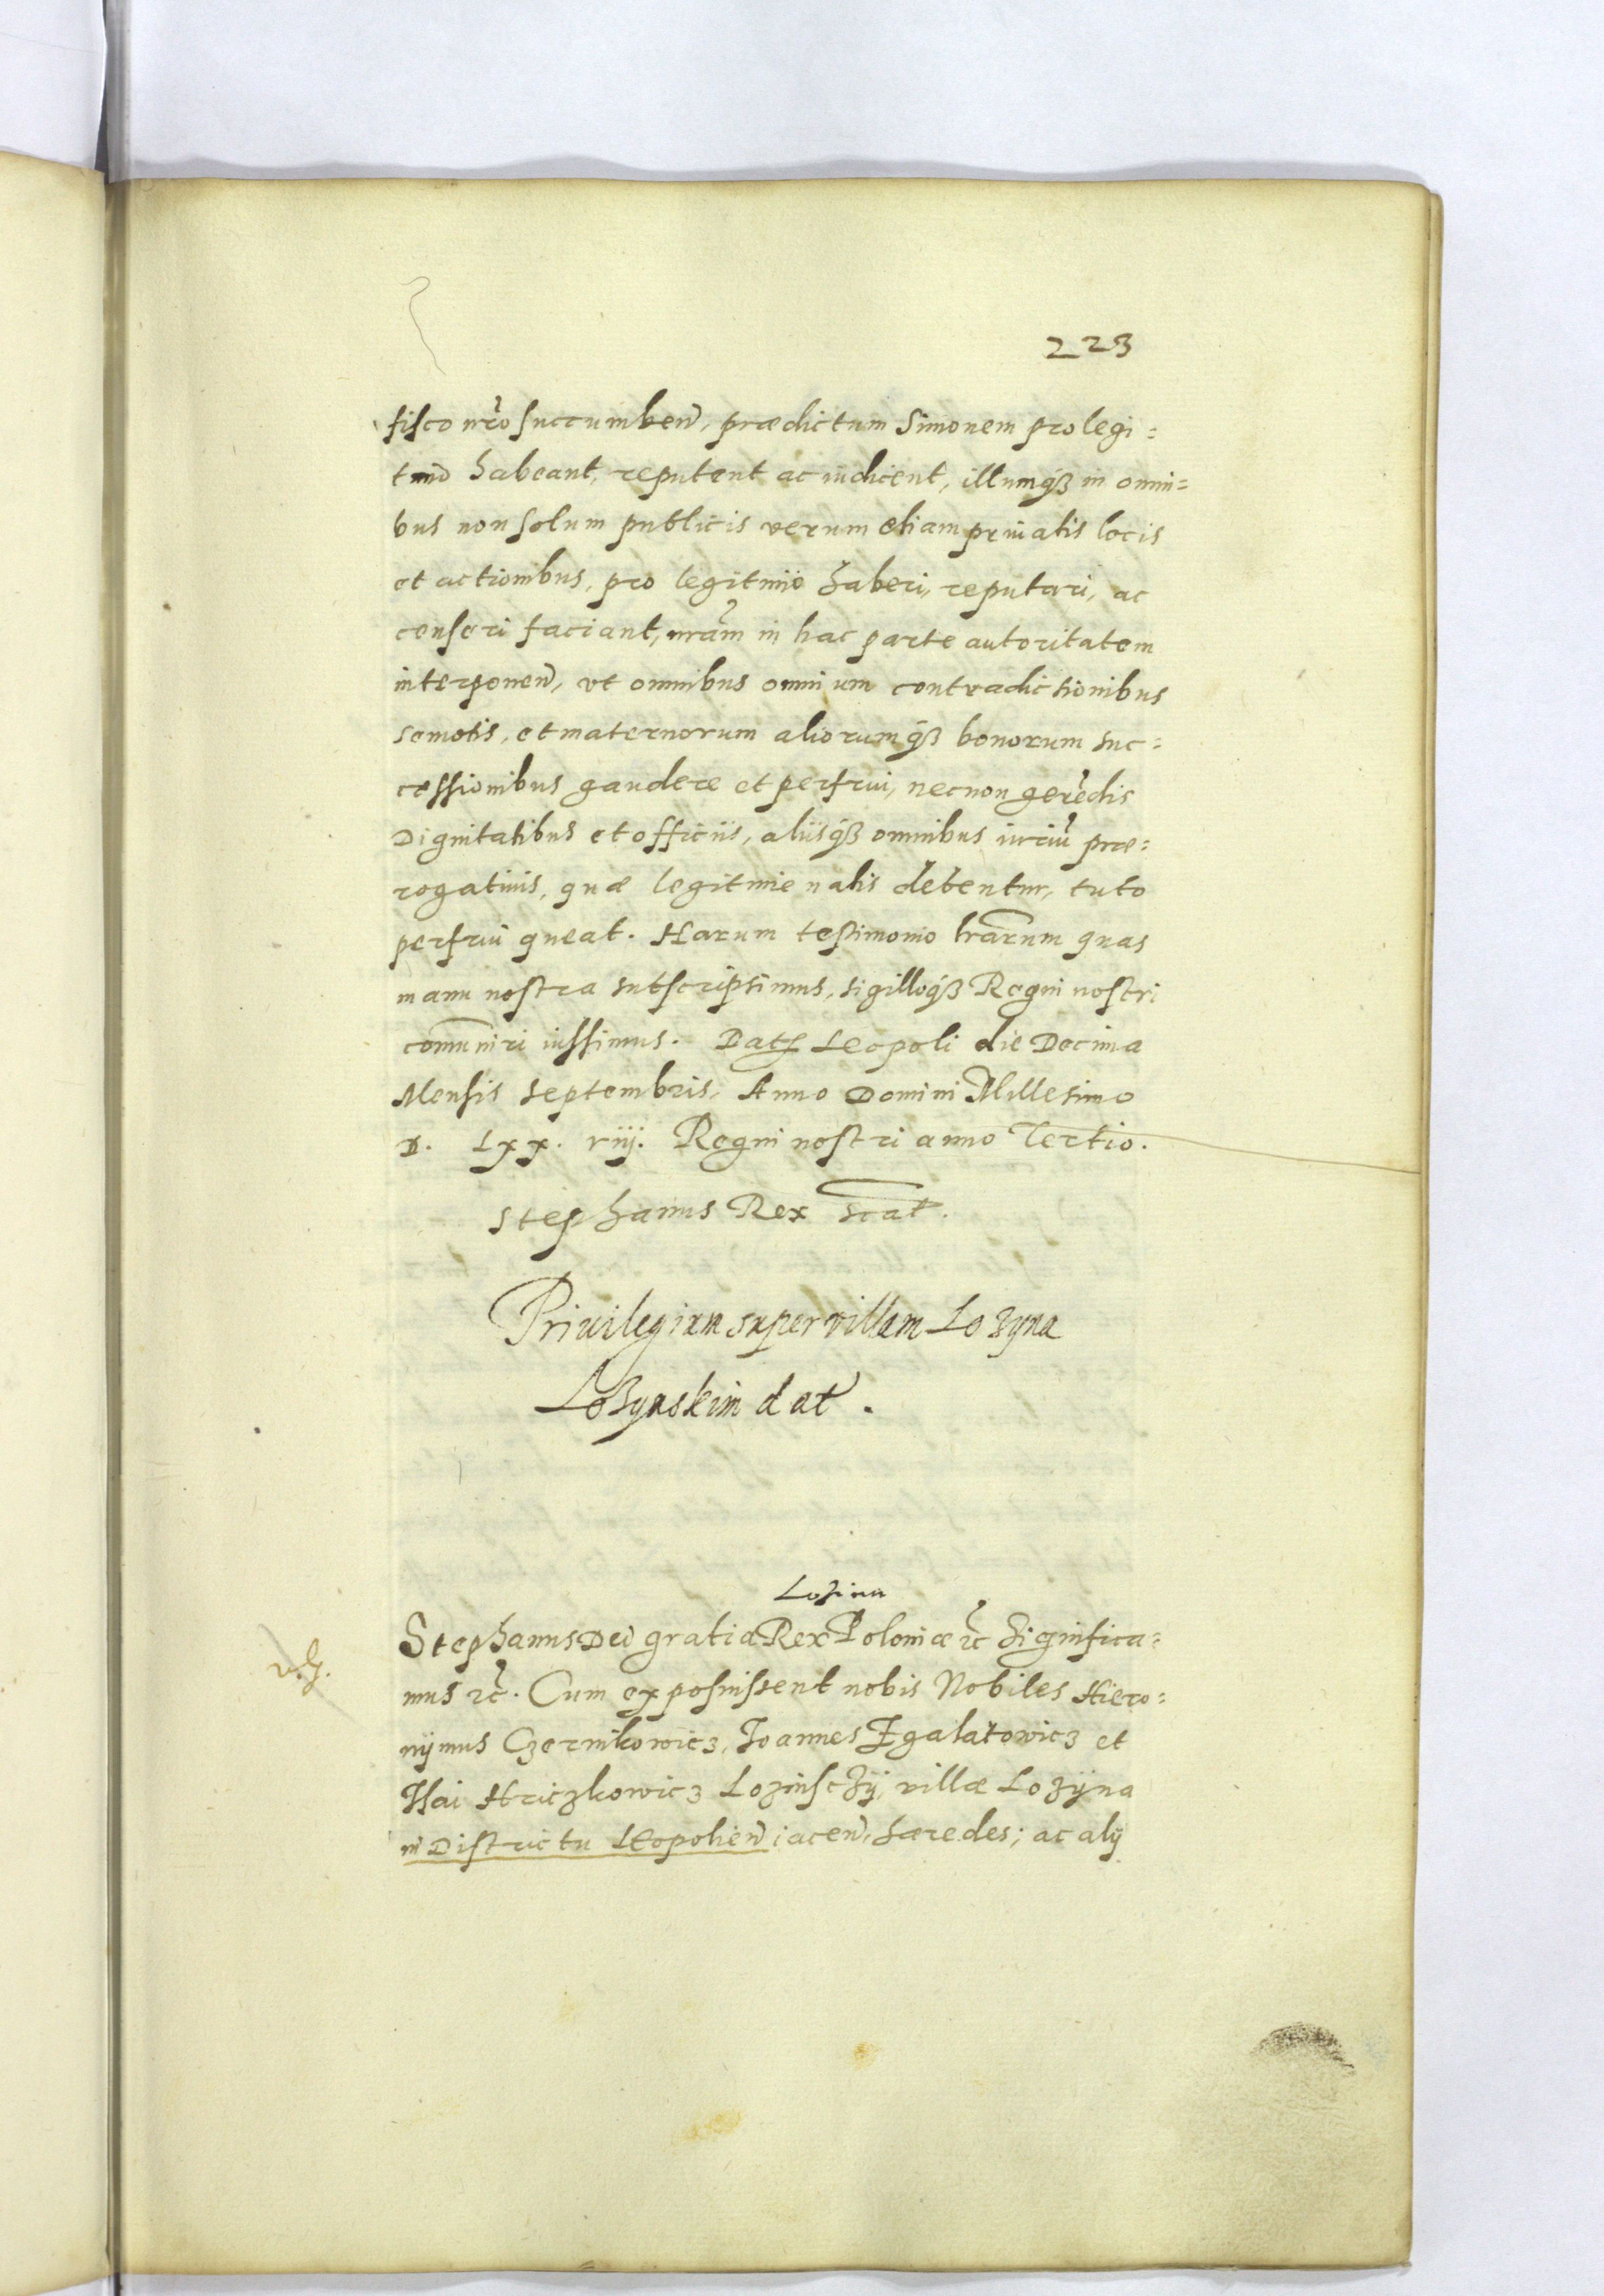 223
fisco nr̃o succumben̄, prædictum Simonem pro legi=
timo habeant, reputent ac iudicent, illumq́ꝫ in omni=
bus non solum publicis verum etiam priuatis locis
et actionibus, pro legitimo haberi, reputari, ac
censeri faciant, nr̃am in hac parte autoritatem
interponen̄, vt omnibus omnium contradictionibus
semotis, et maternorum aliorumq́ꝫ bonorum suc=
cessionibus gaudere et perfrui, necnon gerẽdis
Dignitatibus et officiis, aliisq́ꝫ omnibus iuriũ præ=
rogatiuis, quæ legitimie natis debentur, tuto
perfrui queat. Harum testimonio lr̃arum quas
manu nostra subscripsimus, sigilloq́ꝫ Regni nostri
com̃uniri iussimus. Datꝭ Leopoli die Decima
Mensis Septembris, Anno Domini Millesimo
D. Lxx. viij. Regni nostri anno Tertio.
Stephanus Rex scat̄.
Priuilegium super villam Lozyna
Lozynskim dat̄.
Lozina
Stephanus Dei gratia Rex Poloniæ ꝛc̃ Significa=
mus ꝛc̃. Cum exposuissent nobis Nobiles Hiero=
nijmus Czernikowicz, Joannes Igalatowicz et
Isai Hriczkowicz Lozinsczÿ, villæ Lozÿna
in Districtu Leopolien̄ iacen̄, hæredes; ac alÿ